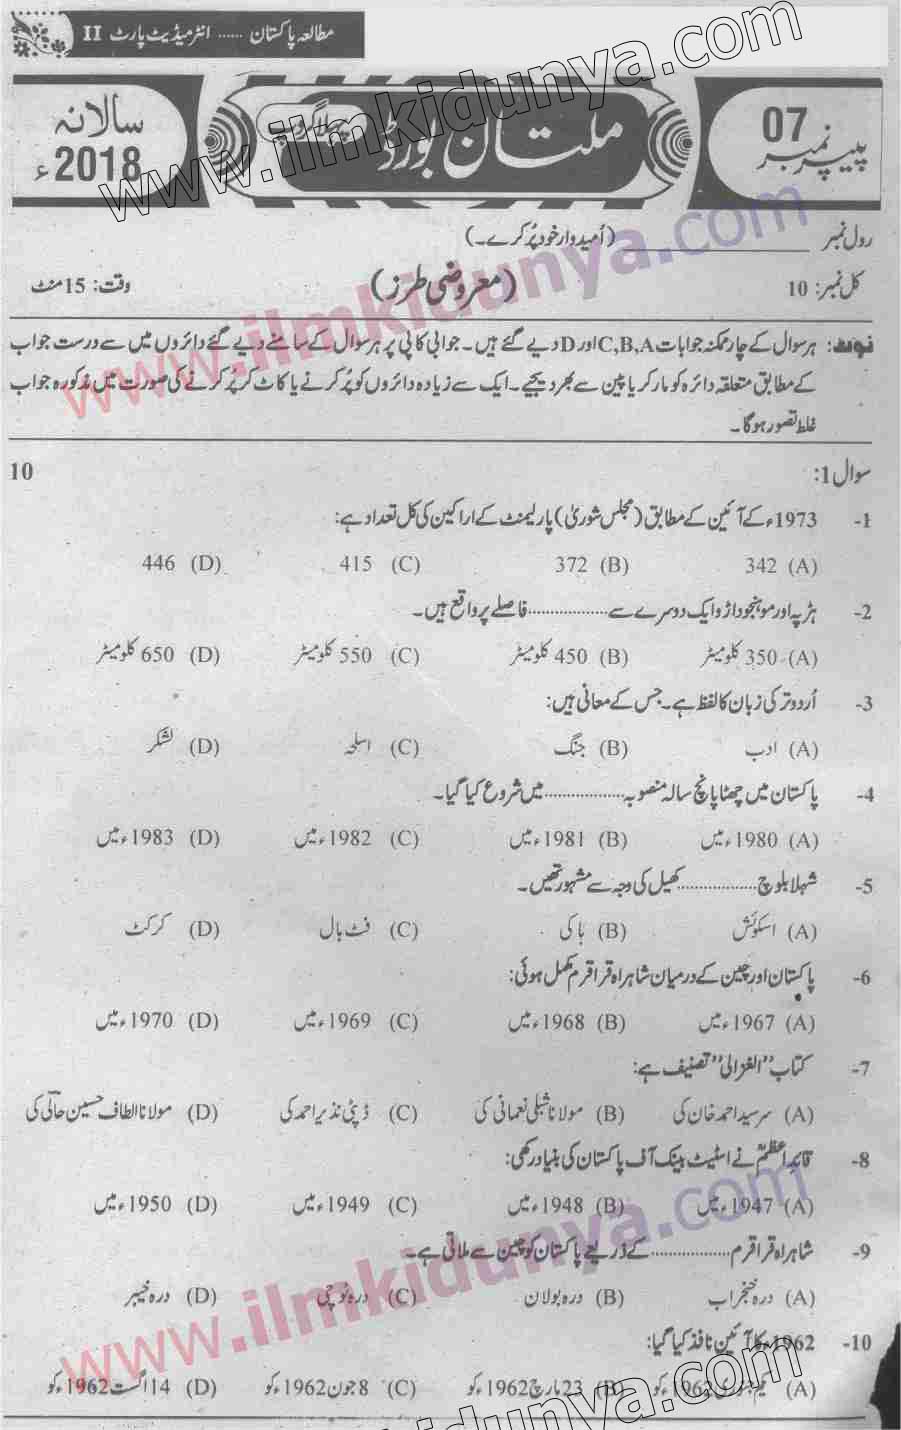 مطالعہ پاکستان ...... انٹرمیڈیٹ پارٹ II
پیپر نمبر 07
ملتان بورڈ
پہلا گروپ
سالانہ 2018ء
رول نمبر ____________ (اُمیدوار خود پُر کرے۔)
کل نمبر: 10 (معروضی طرز) وقت: 15 منٹ
نوٹ: ہر سوال کے چار ممکنہ جوابات C,B,A اور D دیے گئے ہیں۔ جوابی کاپی پر ہر سوال کے سامنے دیے گئے دائروں میں سے درست جواب
کے مطابق متعلقہ دائرہ کو مارکر یا پین سے بھر دیجیے۔ ایک سے زیادہ دائروں کو پُر کرنے یا کاٹ کر پُر کرنے کی صورت میں مذکورہ جواب
غلط تصور ہوگا۔
سوال 1: 10
1- 1973ء کے آئین کے مطابق (مجلس شوریٰ) پارلیمنٹ کے اراکین کی کل تعداد ہے:
(A) 342 (B) 372 (C) 415 (D) 446
2- ہڑپہ اور موہنجوداڑو ایک دوسرے سے .................. فاصلے پر واقع ہیں۔
(A) 350 کلومیٹر (B) 450 کلومیٹر (C) 550 کلومیٹر (D) 650 کلومیٹر
3- اُردو ترکی زبان کا لفظ ہے۔ جس کے معانی ہیں:
(A) ادب (B) جنگ (C) اسلحہ (D) لشکر
4- پاکستان میں چھٹا پانچ سالہ منصوبہ .................. میں شروع کیا گیا۔
(A) 1980ء میں (B) 1981ء میں (C) 1982ء میں (D) 1983ء میں
5- شہلا بلوچ .................. کھیل کی وجہ سے مشہور تھیں۔
(A) اسکوائش (B) ہاکی (C) فٹ بال (D) کرکٹ
6- پاکستان اور چین کے درمیان شاہراہ قراقرم مکمل ہوئی:
(A) 1967ء میں (B) 1968ء میں (C) 1969ء میں (D) 1970ء میں
7- کتاب "الغزالی" تصنیف ہے:
(A) سرسید احمد خان کی (B) مولانا شبلی نعمانی کی (C) ڈپٹی نذیر احمد کی (D) مولانا الطاف حسین حالی کی
8- قائداعظمؒ نے اسٹیٹ بینک آف پاکستان کی بنیاد رکھی:
(A) 1947ء میں (B) 1948ء میں (C) 1949ء میں (D) 1950ء میں
9- شاہراہ قراقرم .................. کے ذریعے پاکستان کو چین سے ملاتی ہے۔
(A) درہ خنجراب (B) درہ بولان (C) درہ ٹوچی (D) درہ خیبر
10- 1962ء کا آئین نافذ کیا گیا:
(A) یکم جنوری 1962ء کو (B) 23 مارچ 1962ء کو (C) 8 جون 1962ء کو (D) 14 اگست 1962ء کو
www.ilmkidunya.com
www.ilmkidunya.com
www.ilmkidunya.com
www.ilmkidunya.com